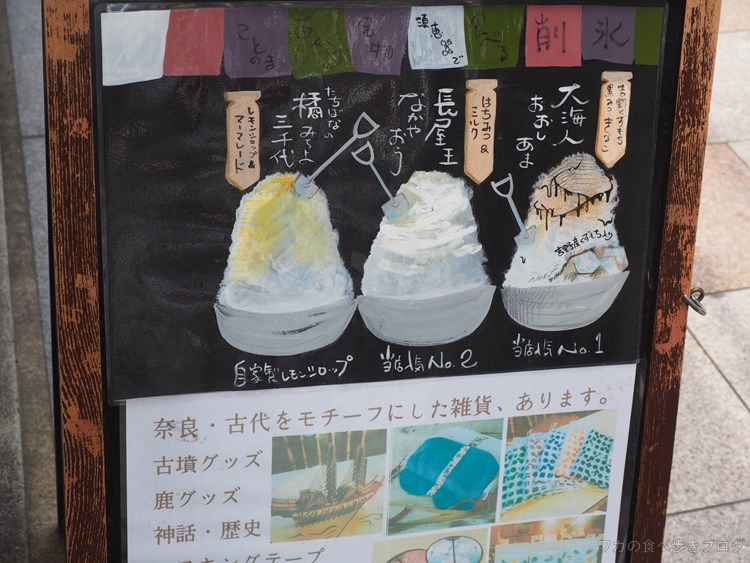 ことのまあかり 名物 須恵器で 食べる 削氷
吉野くずもち
黒みつきなこ
大海人
おおしあま
はちみつ&
ミルク
長屋王
ながやおう
橘三千代
たちばなのみちよ
レモンシロップ&
マーマレード
吉野産くずもち入り
自家製レモンシロップ
当店人気No.2
当店人気No.1
奈良・古代をモチーフにした雑貨、あります。
古墳グッズ
鹿グッズ
神話・歴史
マスキングテープ
フカの食べ歩きブログ